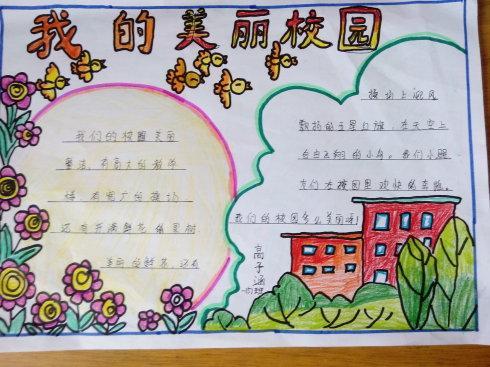 我的美丽校园
我们的校园美丽
整洁,有高大的教学
楼,有宽广的操场
还有开满鲜花的果树
美丽的鲜花,还有
操场上迎风
飘扬的五星红旗,在天空上
自由飞翔的小鸟。我们小朋
友们在校园里欢快的
我们的校园多么美丽呀!
高子涵